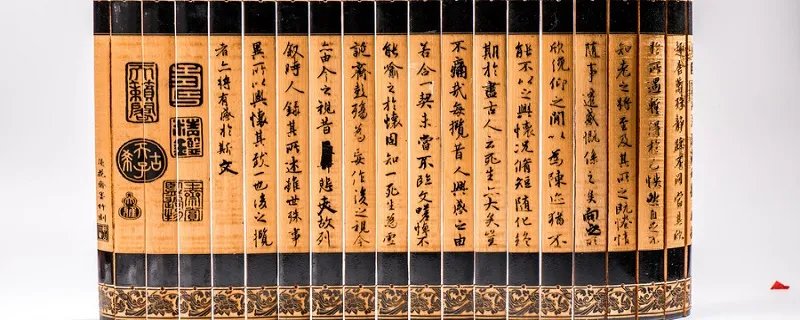 趣舍萬殊靜躁不同當其欣
於所遇蹔得於己怏然自足不
知老之將至及其所之既惓情
隨事遷感慨係之矣向之所
欣俛仰之間以為陳迹猶不
能不以之興懷況脩短隨化終
期於盡古人云死生亦大矣豈
不痛哉每攬昔人興感之由
若合一契未嘗不臨文嗟悼不
能喻之於懷固知一死生為虛
誕齊彭殤為妄作後之視今
亦由今之視昔悲夫故列
敘時人錄其所述雖世殊事
異所以興懷其致一也後之攬
者亦將有感於斯文